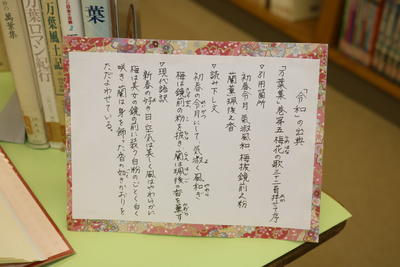 「令和」の出典
「万葉集」巻第五 梅花の歌三十二首并せて序
▽引用箇所
初春令月 気淑風和 梅披鏡前之粉
蘭薫珮後之香
▽読み下し文
初春の令月にして、気淑く風和ぎ
梅は鏡前の粉を披き 蘭は珮後の香を薫す
▽現代語訳
新春の好き日 空気は美しく風はやわらかい
梅は美女の鏡の前に装う白粉のごとく白く
咲き 蘭は身を飾った香の如きかおりを
ただよわせている。
萬葉集
万葉ロマン紀行
万葉風土記
葉